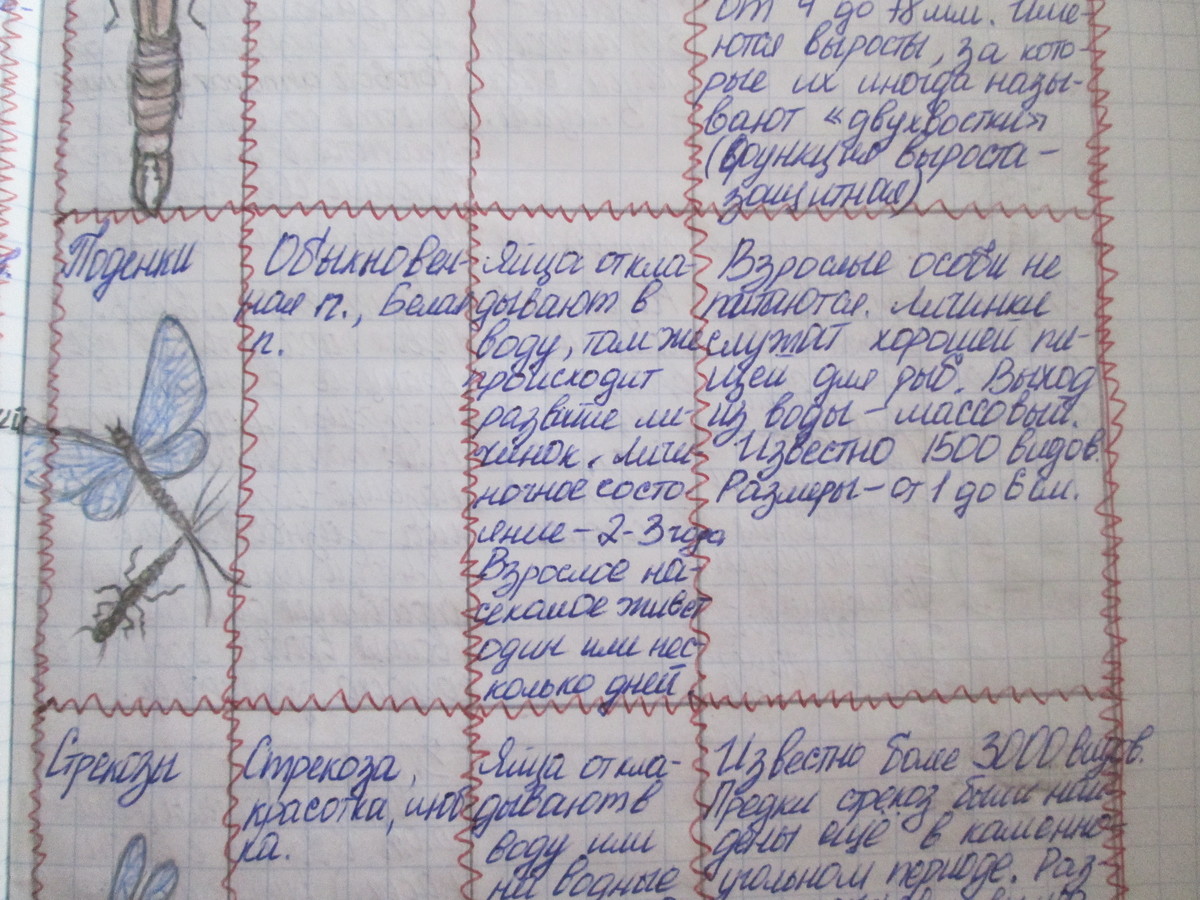 от 4 до 78 мм. Име-
ются выросты, за кото-
рые их иногда назы-
вают «двухвостки»
(функция выроста -
защитная)
Поденки
Обыкновен-
ная п., Белая
п.
Яйца откла-
дывают в
воду, там же
происходит
развитие ли-
чинок. Личи-
ночное состо
яние - 2-3 года
Взрослое на-
секомое живет
один или нес-
колько дней.
Взрослые особи не
питаются. Личинки
служат хорошей пи-
щей для рыб. Выход
из воды - массовый.
Известно 1500 видов.
Размеры - от 1 до 6 см.
Стрекозы
Стрекоза,
красотка, лют-
ка.
Яйца откла-
дывают в
воду или
на водные
Известно более 3000 видов.
Предки стрекоз были най-
дены еще в каменно-
угольном периоде. Раз-